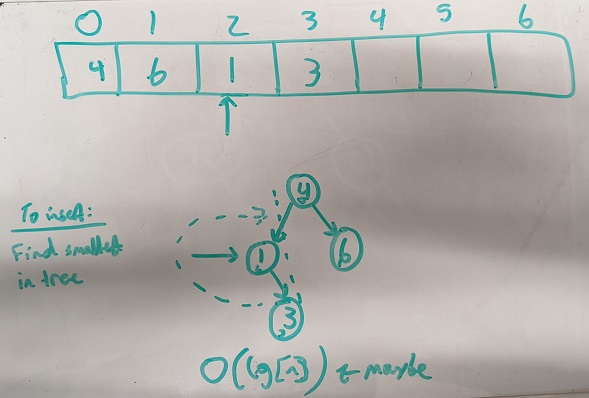 0 1 2 3 4 5 6
4 6 1 3
To insert:
Find smallest
in tree
4
1 6
3
O(lg[n]) ← maybe